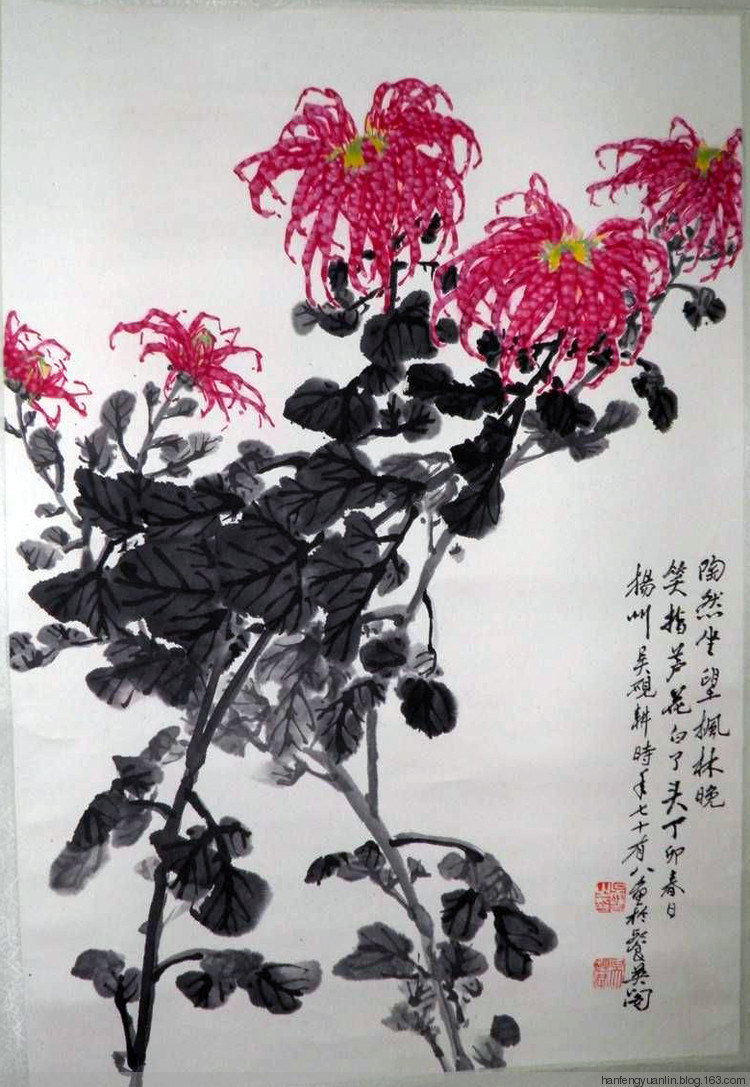 陶然坐望枫林晚
笑指芦花白了头丁卯春日
揚州吴砚耕時年七十有八画於餐英阁
hanfengyuanlin.blog.163.com